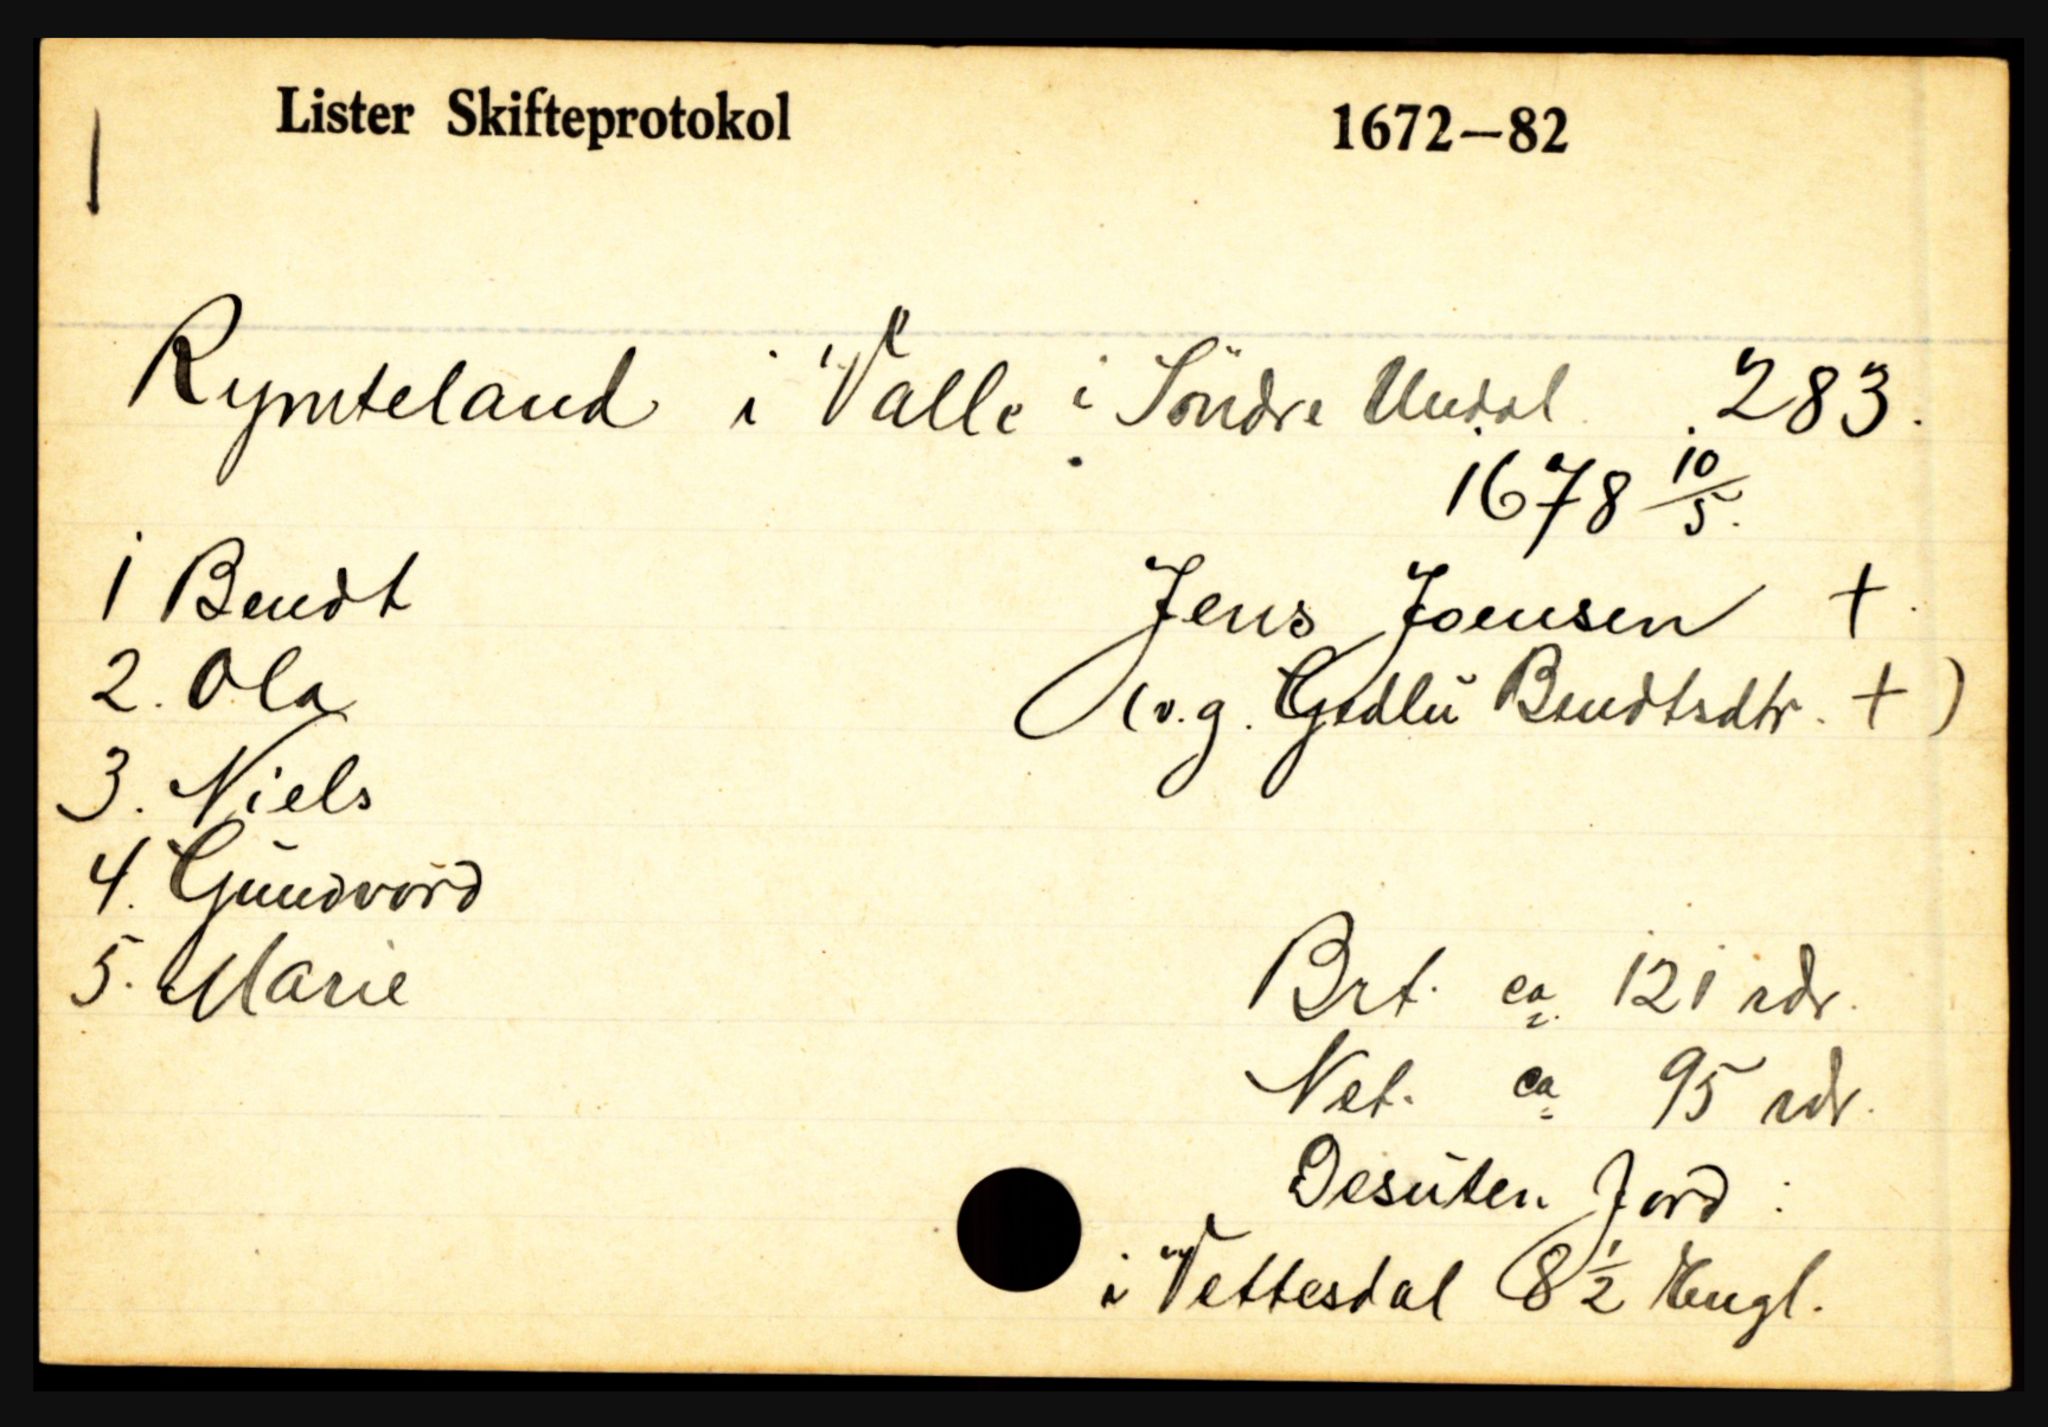 Lister Skifteprotokol 1672–82
Rymteland i Valle i Söndre Undal. 283.
1678 10/5.
1 Bendt
Jens Joensen +
2. Ola
(v. g. Gudlu Bendtsdtr. +)
3. Niels
4. Gundvord
5. Marie
Brt. ca. 121 rdr.
Net. ca 95 rdr.
Desuten Jord :
i Vettesdal 8 1/2 Engl.